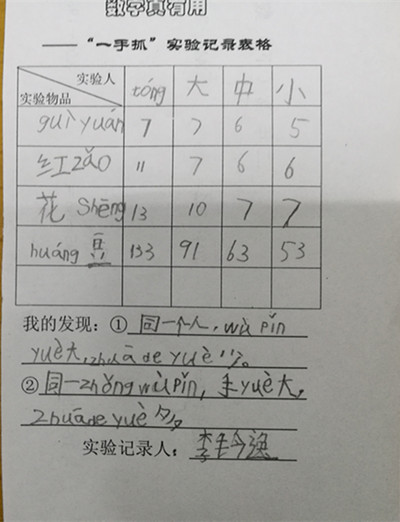 数学真有用
——“一手抓”实验记录表格
实验人 tóng 大 中 小
实验物品
guì yuán 7 7 6 5
红zǎo 11 7 6 6
花 Shēng 13 10 7 7
huáng 豆 133 91 63 53
我的发现：① 同一个人，wù pǐn
yuè大，zhuā de yuè 少。
② 同一zhǒng wù pǐn，手yuè大，
zhuā de yuè 多
实验记录人：李